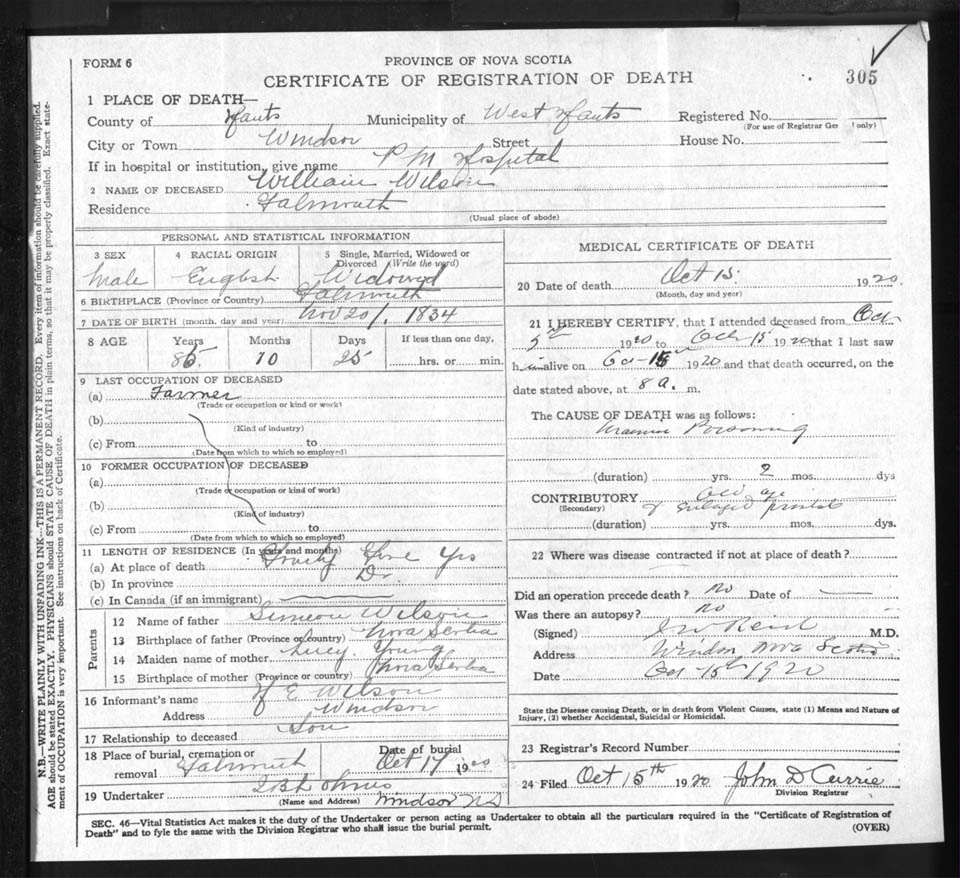 FORM 6
PROVINCE OF NOVA SCOTIA
CERTIFICATE OF REGISTRATION OF DEATH
305
1 PLACE OF DEATH—
County of Hants Municipality of West Hants Registered No.
(For use of Registrar Ger only)
City or Town Windsor Street House No.
If in hospital or institution, give name P M Hospital
2 NAME OF DECEASED William Wilson
Residence Falmouth
(Usual place of abode)
PERSONAL AND STATISTICAL INFORMATION
3 SEX 4 RACIAL ORIGIN 5 Single, Married, Widowed or Divorced (Write the word)
Male English Widowed
6 BIRTHPLACE (Province or Country) Falmouth
7 DATE OF BIRTH (month, day and year) Nov 20/. 1834
8 AGE Years Months Days If less than one day,
85. 10 25 hrs. or min.
9 LAST OCCUPATION OF DECEASED
(a) Farmer
(Trade or occupation or kind or work)
(b)
(Kind of industry)
(c) From to
(Date from which to which so employed)
10 FORMER OCCUPATION OF DECEASED
(a)
(Trade or occupation or kind of work)
(b)
(Kind of industry)
(c) From to
(Date from which to which so employed)
11 LENGTH OF RESIDENCE (In years and months)
(a) At place of death Eighty five yrs
(b) In province Do
(c) In Canada (if an immigrant)
Parents
12 Name of father Simeon Wilson
13 Birthplace of father (Province or country) Nova Scotia
14 Maiden name of mother Lucy Young
15 Birthplace of mother (Province or country) Nova Scotia
16 Informant's name H E Wilson
Address Windsor
17 Relationship to deceased Son
18 Place of burial, cremation or removal Falmouth Date of burial Oct 17 1920
19 Undertaker
(Name and Address) Windsor NS
MEDICAL CERTIFICATE OF DEATH
20 Date of death Oct 15. 1920.
(Month, day and year)
21 I HEREBY CERTIFY, that I attended deceased from Oct
5th 1920 to Oct 15 1920 that I last saw
him alive on Oct 15 1920 and that death occurred, on the
date stated above, at 8 a. m.
The CAUSE OF DEATH was as follows:
Uraemic Poisoning
(duration) yrs. 2 mos. dys
CONTRIBUTORY Old age
(Secondary) & enlarged prostate
(duration) yrs. mos. dys.
22 Where was disease contracted if not at place of death?
Did an operation precede death? no Date of
Was there an autopsy? no
(Signed) J W Reid M.D.
Address Windsor Nova Scotia
Date Oct 15th 1920
State the Disease causing Death, or in death from Violent Causes, state (1) Means and Nature of Injury, (2) whether Accidental, Suicidal or Homicidal.
23 Registrar's Record Number
24 Filed Oct 15th 1920 John D Currie
Division Registrar
SEC. 46—Vital Statistics Act makes it the duty of the Undertaker or person acting as Undertaker to obtain all the particulars required in the "Certificate of Registration of
Death" and to fyle the same with the Division Registrar who shall issue the burial permit.
(OVER)
N.B.—WRITE PLAINLY WITH UNFADING INK—THIS IS A PERMANENT RECORD. Every item of information should be carefully supplied.
AGE should be stated EXACTLY. PHYSICIANS should STATE CAUSE OF DEATH in plain terms, so that it may be properly classified. Exact state-
ment of OCCUPATION is very important. See instructions on back of Certificate.